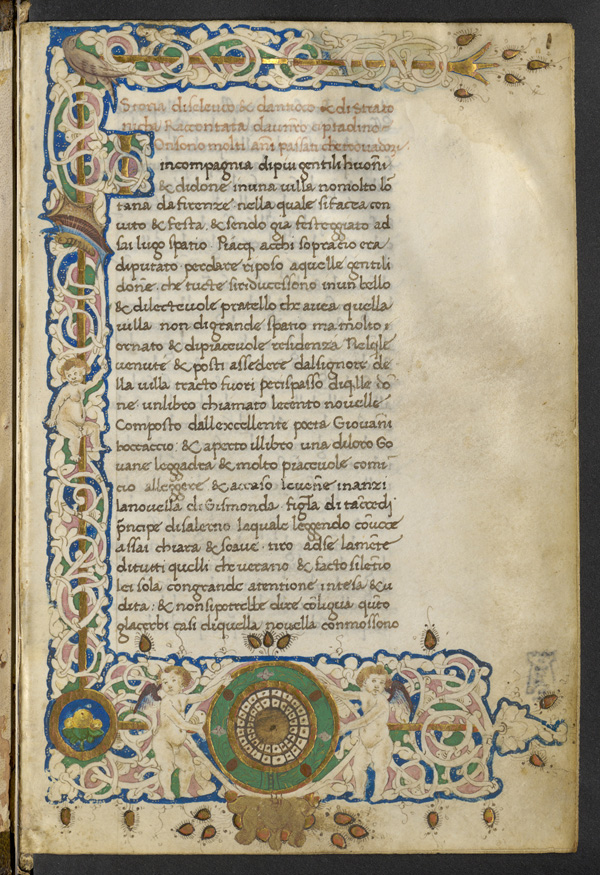 Storia diseleuco & dantioco & di Strato
nicha Raccontata
On sono molti anni passati che trovandomi
in compagnia di piu gentili huomi
& di done in una villa no molto lo
tana da firenze nella quale si facea con
vito & festa, & sendo gia festeggiato ad
sai lugo spatio. Piacq, acchi sopraciò era
diputato perdare riposo aquelle gentili
done. che tucte si riducessono inun bello
& dilectevole pratello che avea quella
villa non di grande spatio ma molto
ornato & dipiacevole residenza Nelqle
venute & posti assedere dalsignore de
lla villa tracto fuori perispasso diqlle do
ne unlibro chiamato lecento novelle
Composto dall excellente poeta Giovani
boccaccio: & aperto illibro una diloro Go
vane leggadra & molto piacevole comi
cio alleggere & accaso le vene inanzi
lanovella di Gismonda figla di tacredi
pncipe disalerno laquale leggendo covoce
assai chiara & soave. tiro adse lamete
ditutti quelli che verano & facto siletio
lei sola congrande atentione intesa & u
dita: & non si potrebbe dire coligua quto
glacerbi casi diquella novella conmossono